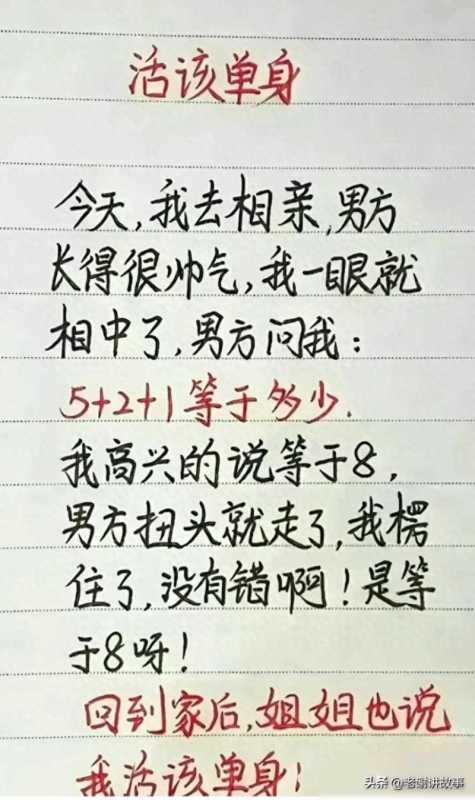 活该单身
今天,我去相亲,男方
长得很帅气,我一眼就
相中了,男方问我:
5+2+1等于多少.
我高兴的说等于8,
男方扭头就走了,我楞
住了,没有错啊!是等
于8呀!
回到家后,姐姐也说
我活该单身!
头条 @老骥讲故事